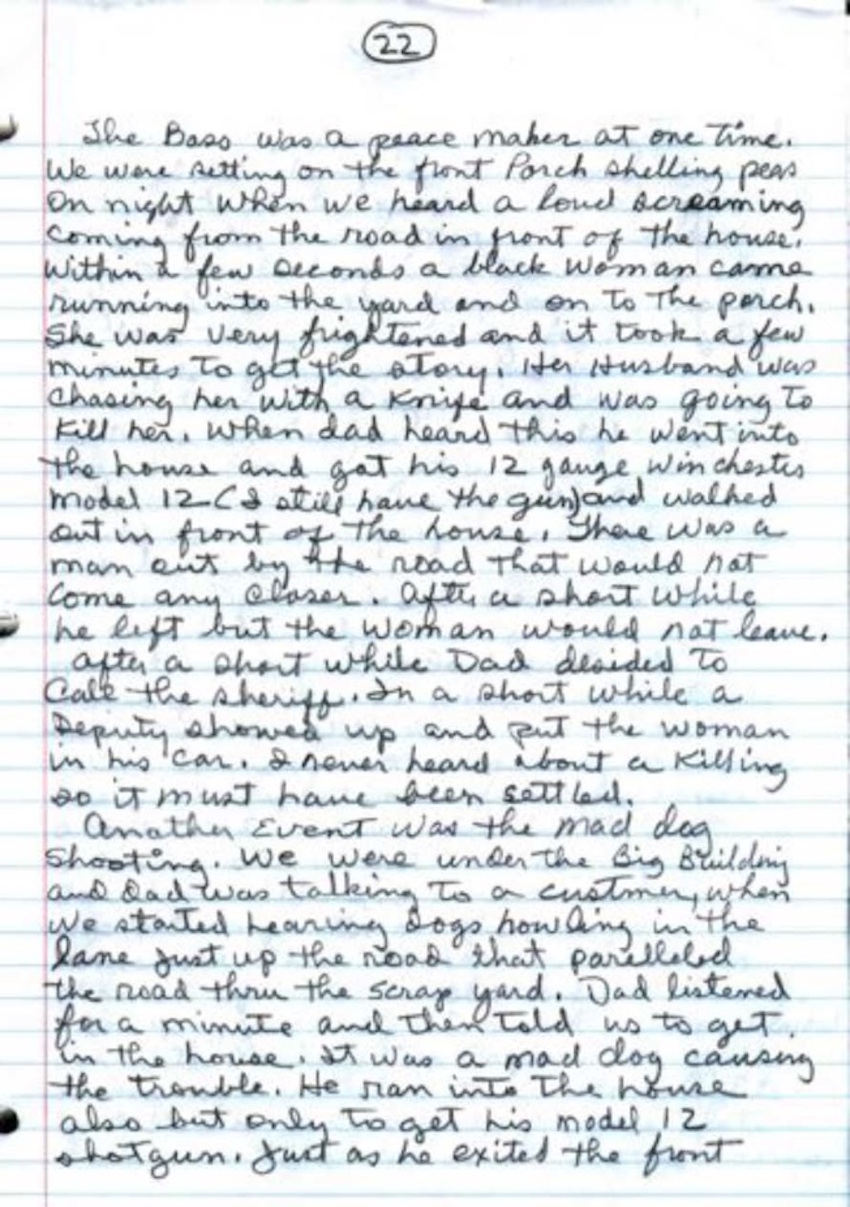 22
The Boss was a peace maker at one time.
We were setting on the front Porch shelling peas
on night when we heard a loud screaming
coming from the road in front of the house.
Within a few seconds a black woman came
running into the yard and on to the porch.
She was very frightened and it took a few
minutes to get the story. Her Husband was
chasing her with a knife and was going to
kill her. When dad heard this he went into
the house and got his 12 gauge Winchester
model 12 (I still have the gun) and walked
out in front of the house. There was a
man out by the road that would not
come any closer. After a short while
he left but the woman would not leave.
after a short while Dad desided to
call the sheriff. In a short while a
Deputy showed up and put the woman
in his car. I never heard about a killing
so it must have been settled.
Another Event was the mad dog
shooting. We were under the Big Building
and Dad was talking to a custmer, when
we started hearing dogs howling in the
lane just up the road that parelleled
the road thru the scrap yard. Dad listened
for a minute and then told us to get
in the house. It was a mad dog causing
the trouble. He ran into the house
also but only to get his model 12
shotgun. Just as he exited the front